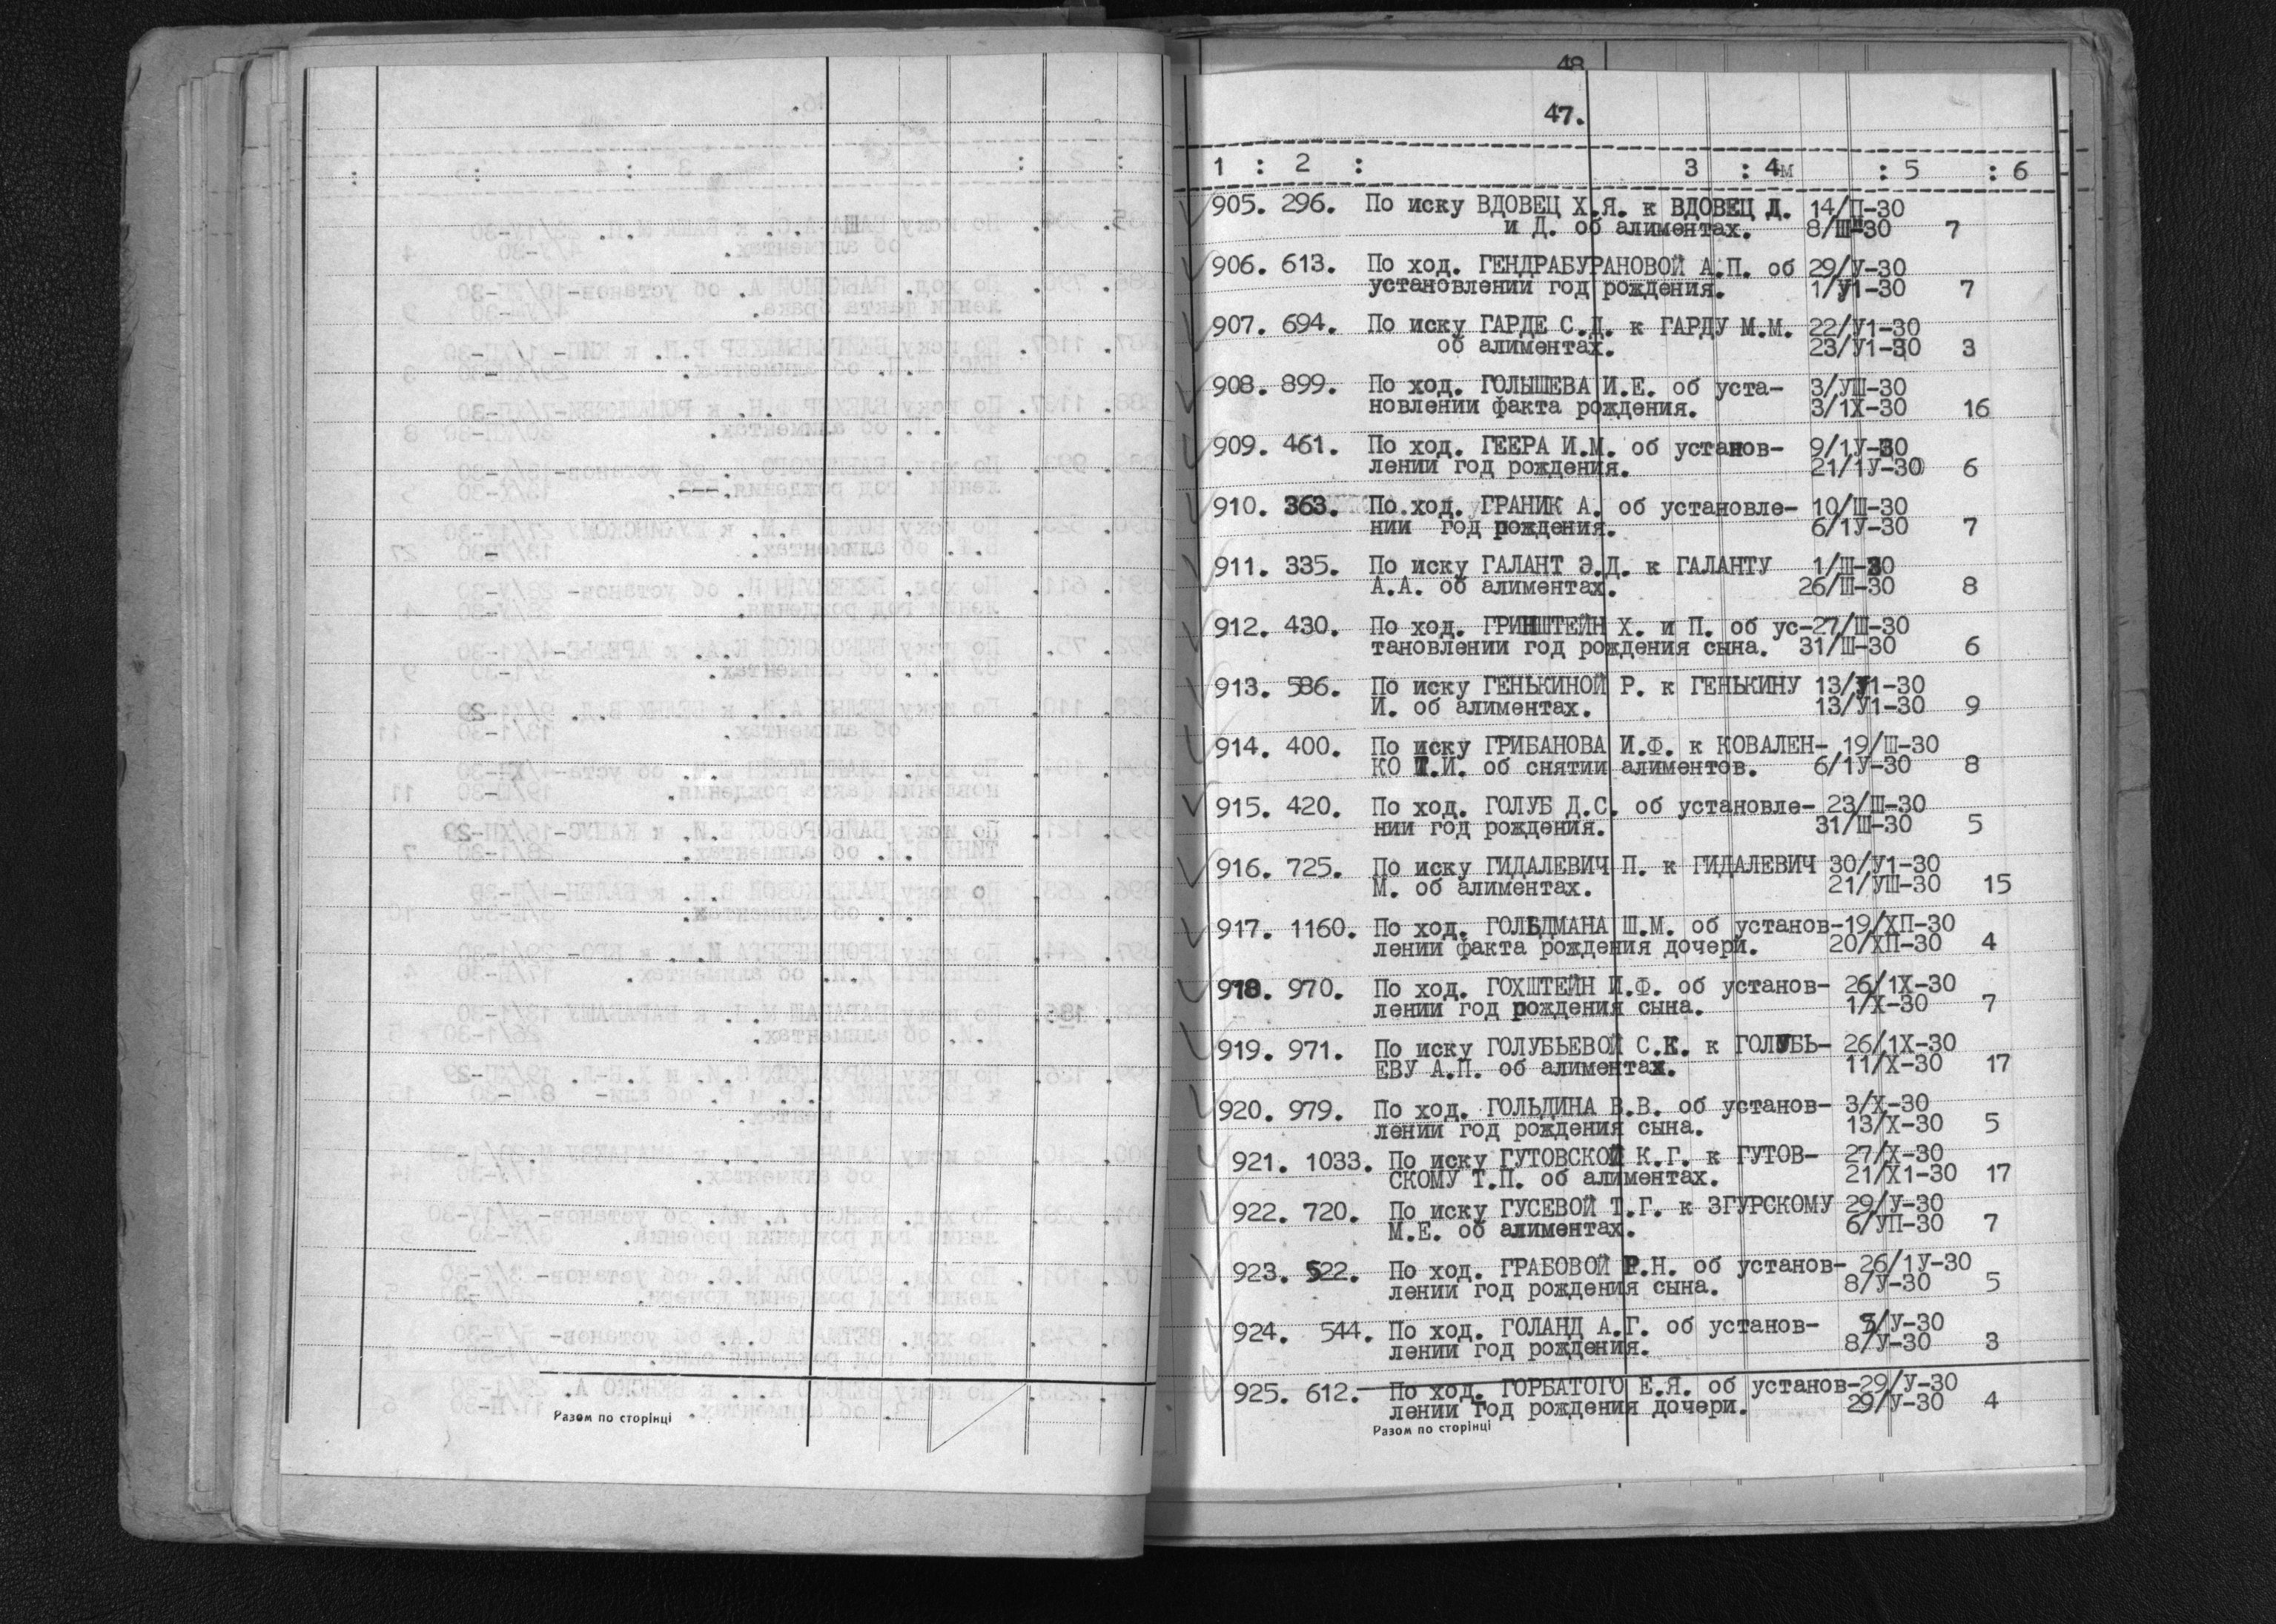 48
47.
1 : 2 : 3 : 4м : 5 : 6
905. 296. По иску ВДОВЕЦ Х.Я. к ВДОВЕЦ Д. 14/П-30
и Д. об алиментах. 8/Ш-30 7
906. 613. По ход. ГЕНДРАБУРАНОВОЙ А.П. об 29/У-30
установлении год рождения. 1/У1-30 7
907. 694. По иску ГАРДЕ С.Д. к ГАРДУ М.М. 22/У1-30
об алиментах. 23/У1-30 3
908. 899. По ход. ГОЛЫШЕВА И.Е. об уста- 3/УШ-30
новлении факта рождения. 3/1Х-30 16
909. 461. По ход. ГЕЕРА И.М. об установ- 9/1У-30
лении год рождения. 21/1У-30 6
910. 363. По ход. ГРАНИК А. об установле- 10/Ш-30
нии год рождения. 6/1У-30 7
911. 335. По иску ГАЛАНТ Э.Д. к ГАЛАНТУ 1/Ш-30
А.А. об алиментах. 26/Ш-30 8
912. 430. По ход. ГРИНШТЕЙН Х. и П. об ус-27/Ш-30
тановлении год рождения сына. 31/Ш-30 6
913. 586. По иску ГЕНЬКИНОЙ Р. к ГЕНЬКИНУ 13/У1-30
И. об алиментах. 13/У1-30 9
914. 400. По иску ГРИБАНОВА И.Ф. к КОВАЛЕН- 19/Ш-30
КО Т.И. об снятии алиментов. 6/1У-30 8
915. 420. По ход. ГОЛУБ Д.С. об установле- 23/Ш-30
нии год рождения. 31/Ш-30 5
916. 725. По иску ГИДАЛЕВИЧ П. к ГИДАЛЕВИЧ 30/У1-30
М. об алиментах. 21/УШ-30 15
917. 1160. По ход. ГОЛЬДМАНА Ш.М. об установ-19/ХП-30
лении факта рождения дочери. 20/ХП-30 4
918. 970. По ход. ГОХШТЕЙН И.Ф. об установ- 26/1Х-30
лении год рождения сына. 1/Х-30 7
919. 971. По иску ГОЛУБЬЕВОЙ С.К. к ГОЛУБЬ- 26/1Х-30
ЕВУ А.П. об алиментах. 11/Х-30 17
920. 979. По ход. ГОЛЬДИНА В.В. об установ- 3/Х-30
лении год рождения сына. 13/Х-30 5
921. 1033. По иску ГУТОВСКОЙ К.Г. к ГУТОВ- 27/Х-30
СКОМУ Т.П. об алиментах. 21/Х1-30 17
922. 720. По иску ГУСЕВОЙ Т.Г. к ЗГУРСКОМУ 29/У-30
М.Е. об алиментах. 6/УП-30 7
923. 522. По ход. ГРАБОВОЙ Р.Н. об установ- 26/1У-30
лении год рождения сына. 8/У-30 5
924. 544. По ход. ГОЛАНД А.Г. об установ- 5/У-30
лении год рождения. 8/У-30 3
925. 612. По ход. ГОРБАТОГО Е.Я. об установ-29/У-30
лении год рождения дочери. 29/У-30 4
Разом по сторінці
Разом по сторінці